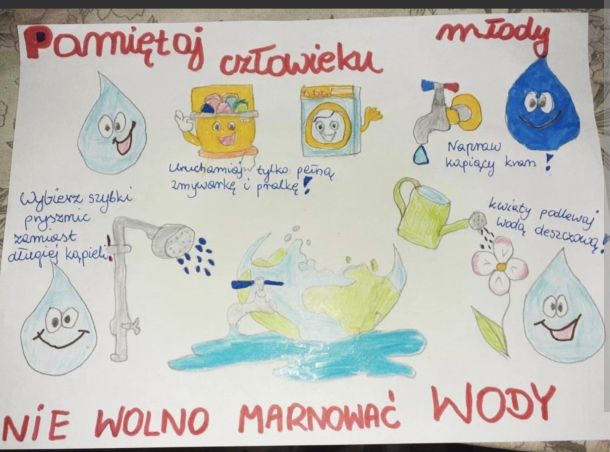 Pamiętaj człowieku młody
Uruchamiaj tylko pełną
zmywarkę i pralkę!
Napraw
kapiący kran!
Wybierz szybki
prysznic
zamiast
długiej kąpieli!
kwiaty podlewaj
wodą deszczową!
NIE WOLNO MARNOWAĆ WODY